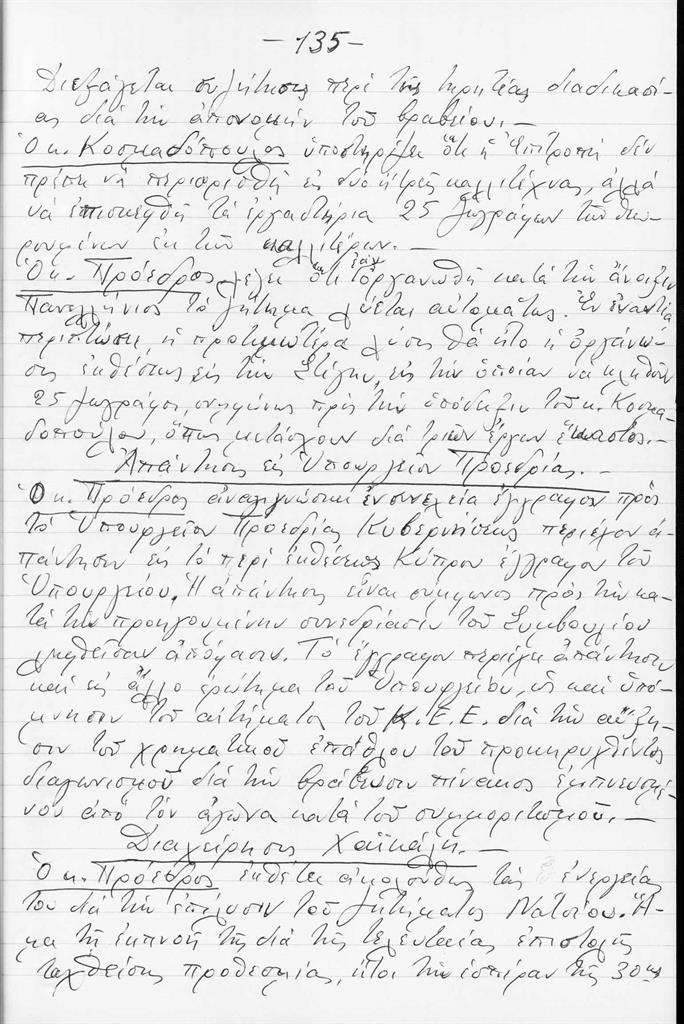 — 135 —
Διεξάγεται συζήτησις περί τῆς τηρητέας διαδικασί-
ας διά τήν ἀπονομήν τοῦ βραβείου.—
Ὁ κ. Κοσμαδόπουλος ὑποστηρίζει ὅτι ἡ Ἐπιτροπή δέν
πρέπει νά περιορισθῇ εἰς δύο ἤ τρεῖς καλλιτέχνας, ἀλλά
νά ἐπισκεφθῇ τά ἐργαστήρια 25 ζωγράφων τῶν θεω-
ρουμένων ἐκ τῶν καλλιτέρων.—
Ὁ κ. Πρόεδρος λέγει ὅτι ἐάν ὀργανωθῇ κατά τήν ἄνοιξιν
Πανελλήνιος τό ζήτημα λύεται αὐτομάτως. Ἐν ἐναντίᾳ
περιπτώσει, ἡ προτιμωτέρα λύσις θά ἦτο ἡ ὀργάνω-
σις ἐκθέσεως εἰς τήν Στέγην, εἰς τήν ὁποίαν νά κληθοῦν
25 ζωγράφοι, συμφώνως πρός τήν ὑπόδειξιν τοῦ κ. Κοσμα-
δοπούλου, ὅπως μετάσχουν διά τριῶν ἔργων ἕκαστος.—
Ἀπάντησις εἰς Ὑπουργεῖον Προεδρίας.—
Ὁ κ. Πρόεδρος ἀναγιγνώσκει ἐν συνεχείᾳ ἔγγραφον πρός
τό Ὑπουργεῖον Προεδρίας Κυβερνήσεως περιέχον ἀ-
πάντησιν εἰς τό περί ἐκθέσεως Κύπρου ἔγγραφον τοῦ
Ὑπουργείου. Ἡ ἀπάντησις εἶναι σύμφωνος πρός τήν κα-
τά τήν προηγουμένην συνεδρίασιν τοῦ Συμβουλίου
ληφθεῖσαν ἀπόφασιν. Τό ἔγγραφον περιέχει ἀπάντησιν
καί εἰς ἄλλο ἐρώτημα τοῦ Ὑπουργείου, ὡς καί ὑπό-
μνησιν τοῦ αἰτήματος τοῦ Κ.Ε.Ε. διά τήν αὔξη-
σιν τοῦ χρηματικοῦ ἐπάθλου τοῦ προκηρυχθέντος
διαγωνισμοῦ διά τήν βράβευσιν πίνακος ἐμπνευσμέ-
νου ἀπό τόν ἀγῶνα κατά τοῦ συμμοριτισμοῦ.—
Διαχείρησις Χαϊκάλη.—
Ὁ κ. Πρόεδρος ἐκθέτει ἀκολούθως τάς ἐνεργείας
του διά τήν ἐπίλυσιν τοῦ ζητήματος Νατσίου. Ἅ-
μα τῇ ἐκπνοῇ τῆς διά τῆς τελευταίας ἐπιστολῆς
ταχθείσης προθεσμίας, ἤτοι τήν ἑσπέραν τῆς 30ης